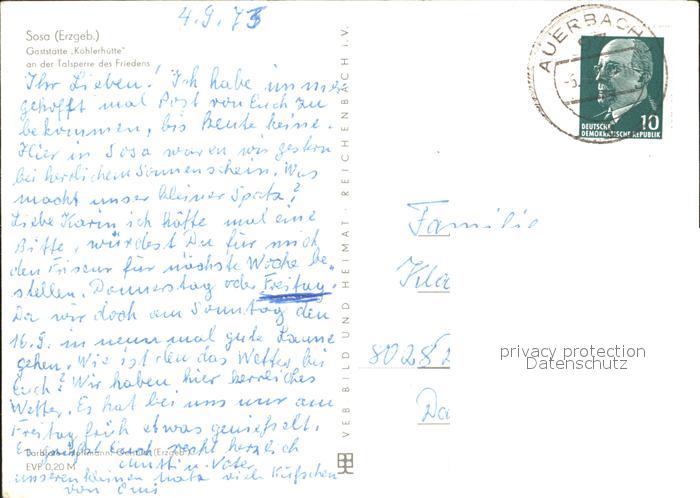 4.9.73
Sosa (Erzgeb.)
Gaststätte „Köhlerhütte"
an der Talsperre des Friedens
Ihr Lieben! Ich habe immer
gehofft mal Post von Euch zu
bekommen, bis heute keine.
Hier in Sosa waren wir gestern
bei herrlichem Sonnenschein. Was
macht unser kleiner Spatz?
Liebe Karin ich hätte mal eine
Bitte, würdest Du für mich
den Friseur für nächste Woche be-
stellen. Donnerstag oder Freitag.
Da wir doch am Sonntag den
16.9. in
mal
gehen. Wie ist den das Wetter bei
Euch? Wir haben hier herrliches
Wetter. Es hat bei uns nur am
Freitag früh etwas genieselt.
Es grüßt Euch recht herzlich
Mutti u. Vater
unseren kleinen
viele Küßchen
von Omi
EVP 0,20 M
VEB BILD UND HEIMAT REICHENBACH i.V.
AUERBACH
DEUTSCHE
DEMOKRATISCHE REPUBLIK
10
Familie
Kla
8028
Da
privacy protection
Datenschutz